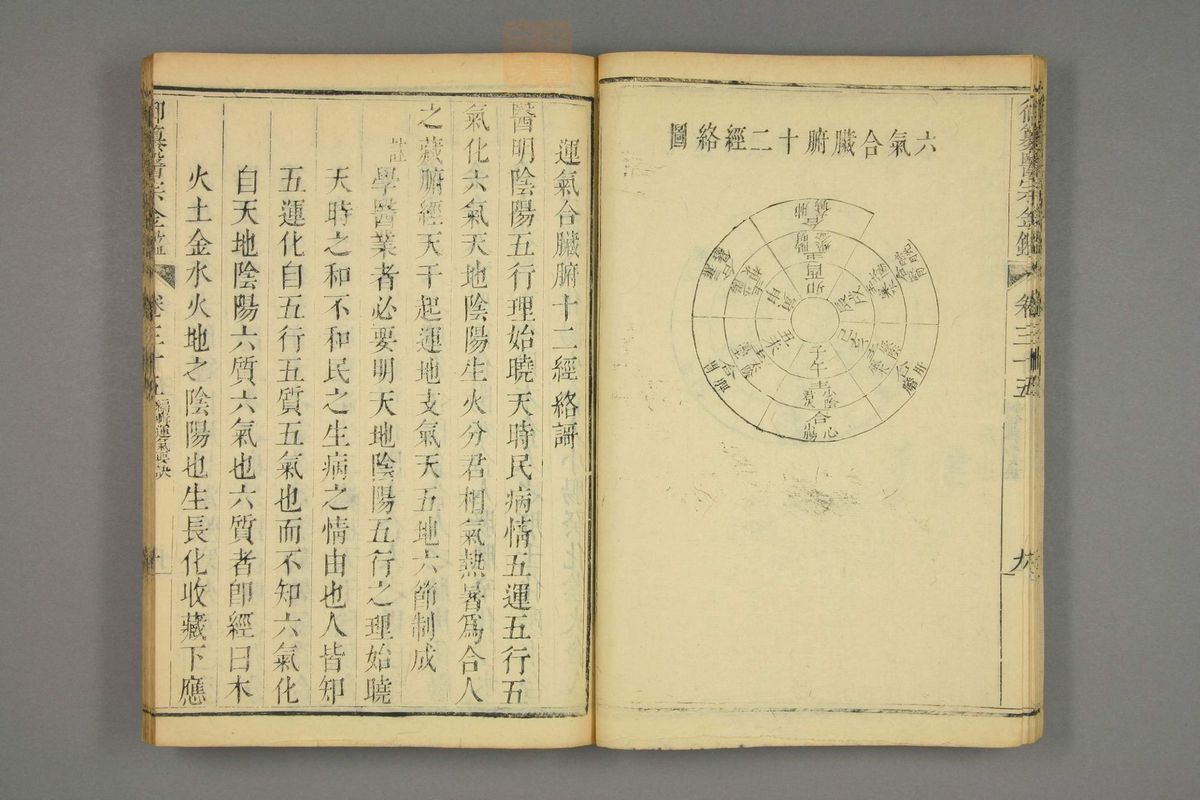 六氣合臟腑十二經絡圖
子午
少陰
君火
合
心
卯酉
御纂醫宗金鑑
卷三十五
九
運氣合臟腑十二經絡謌
醫明陰陽五行理始曉天時民病情五運五行五
氣化六氣天地陰陽生火分君相氣熱暑爲合人
之藏腑經天干起運地支氣天五地六節制成
註
學醫業者必要明天地陰陽五行之理始曉
天時之和不和民之生病之情由也人皆知
五運化自五行五質五氣也而不知六氣化
自天地陰陽六質六氣也六質者卽經曰木
火土金水火地之陰陽也生長化收藏下應
御纂醫宗金鑑
卷三十五
編輯運氣要訣